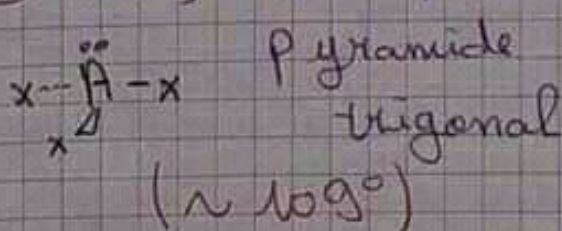 x---A-x
x
Pyramide
trigonal
(~ 109°)